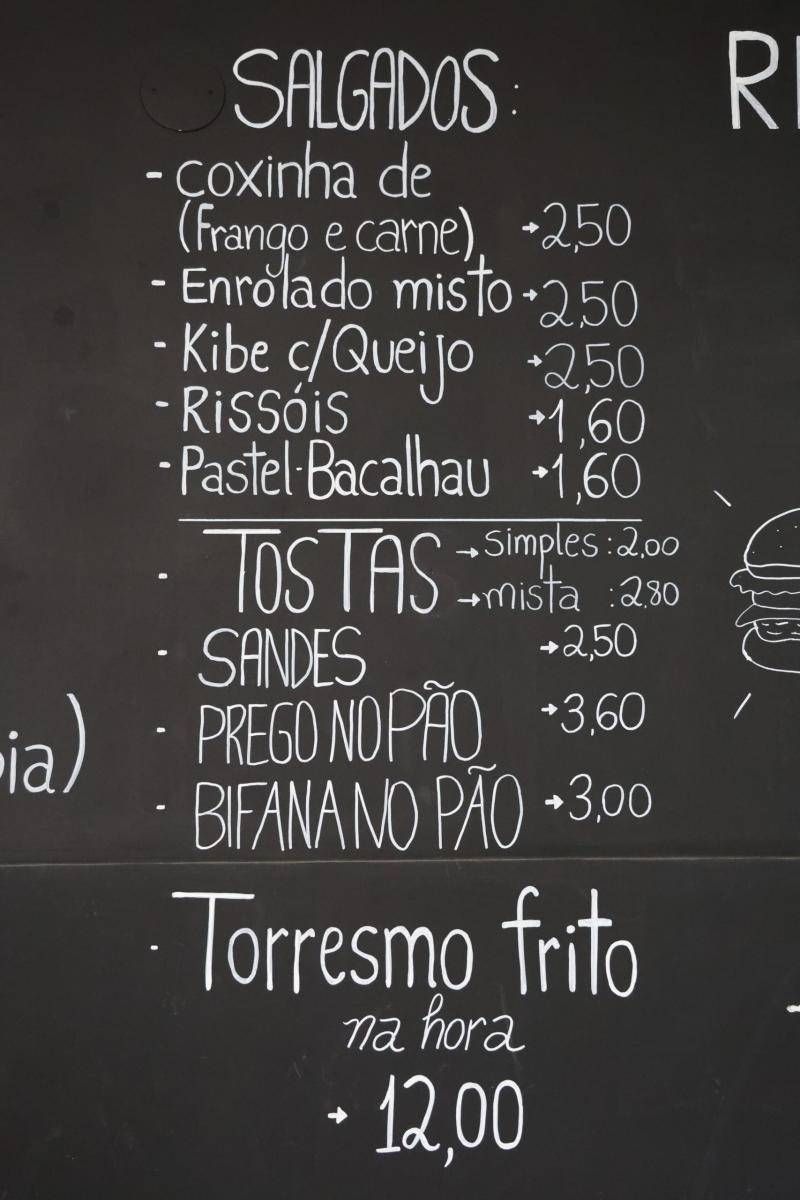 SALGADOS:
- coxinha de
(Frango e carne) →2,50
- Enrolado misto →2,50
- Kibe c/Queijo →2,50
- Rissóis →1,60
- Pastel-Bacalhau →1,60
- TOSTAS →simples:2,00
→mista :2,80
- SANDES →2,50
- PREGO NO PÃO →3,60
- BIFANA NO PÃO →3,00
- Torresmo frito
na hora
→ 12,00